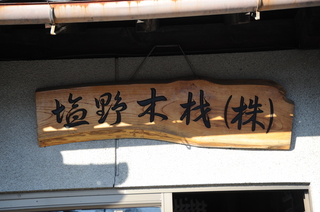 塩野木材(株)